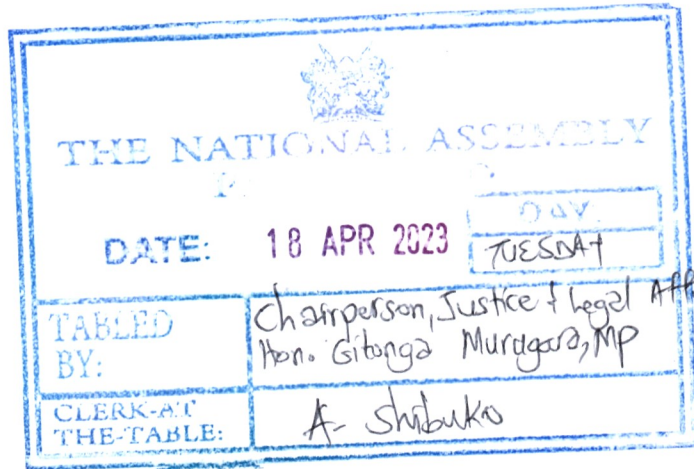 THE NATIONAL ASSEMBLY
DATE: 18 APR 2023
DAY:
TUESDAY
TABLED
BY:
Chairperson, Justice & Legal
Hon. Gitonga Murugara, MP
CLERK-AT
THE-TABLE:
A. Shibuko